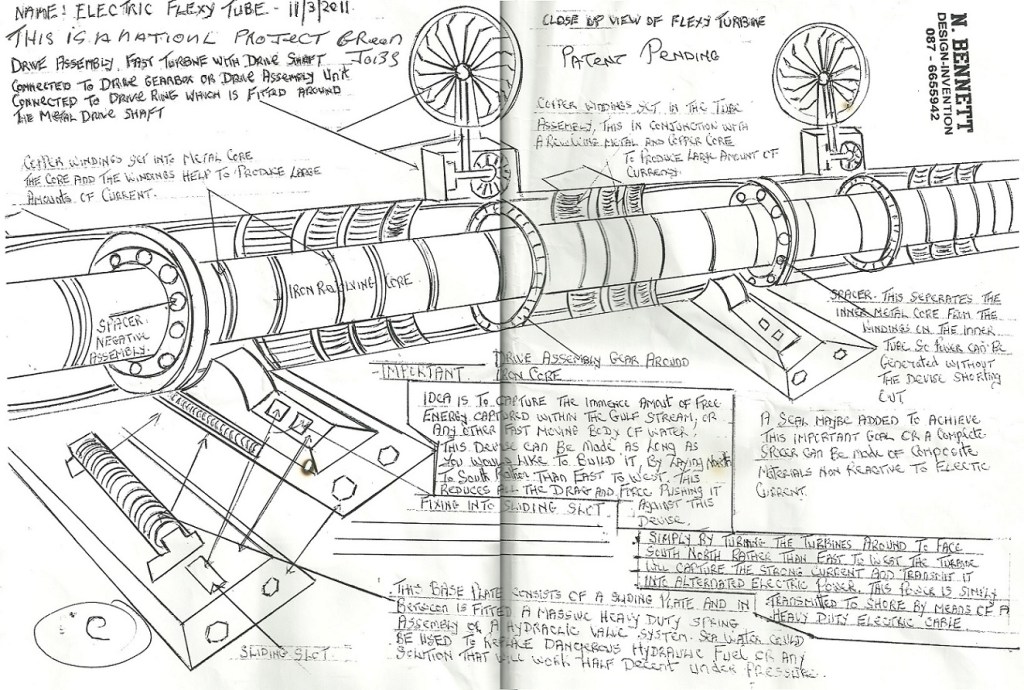 NAME: ELECTRIC FLEXY TUBE - 11/3/2011.
THIS IS A NATIONL PROJECT GREEN
JOI3S
DRIVE ASSEMBLY, FAST TURBINE WITH DRIVE SHAFT
CONNECTED TO DRIVE GEARBOX OR DRIVE ASSEMBLY UNIT
CONNECTED TO DRIVE RING WHICH IS FITTED AROUND
THE METAL DRIVE SHAFT
COPPER WINDINGS SET INTO METAL CORE
THE CORE AND THE WINDINGS HELP TO PRODUCE LARGE
AMOUNTS OF CURRENT.
CLOSE UP VIEW OF FLEXY TURBINE
PATENT PENDING
N. BENNETT
DESIGN-INVENTION
087 - 6655942
COPPER WINDINGS SET IN THE TUBE
ASSEMBLY, THIS IN CONJUNCTION WITH
A REVOLVING METAL AND COPPER CORE
TO PRODUCE LARGE AMOUNT OF
CURRENCY.
IRON REVOLVING CORE
SPACER
NEGATIVE
ASSEMBLY.
SPACER. THIS SEPERATES THE
INNER METAL CORE FROM THE
WINDINGS ON THE INNER
TUBE SO POWER CAN BE
GENERATED WITHOUT
THE DEVISE SHORTING
OUT
DRIVE ASSEMBLY GEAR AROUND
IRON CORE
IMPORTANT
IDEA IS TO CAPTURE THE IMMENCE AMOUT OF FREE
ENERGY CAPTURED WITHIN THE GULF STREAM, OR
ANY OTHER FAST MOVING BODY OF WATER.
THIS DEVISE CAN BE MADE AS LONG AS
YOU WOULD LIKE TO BUILD IT, BY LAYING NORTH
TO SOUTH RATHER THAN EAST TO WEST. THIS
REDUCES ALL THE DRAG AND FORCE PUSHING IT
AGAINST THIS
DEVISE.
FIXING INTO SLIDING SLOT.
A SEAL MAYBE ADDED TO ACHIEVE
THIS IMPORTANT GOAL OR A COMPLETE
SPACER CAN BE MADE OF COMPOSITE
MATERIALS NON REACTIVE TO ELECTIC
CURRENT.
SIMPLY BY TURNING THE TURBINES AROUND TO FACE
SOUTH NORTH RATHER THAN EAST TO WEST THE TURBINE
WILL CAPTURE THE STRONG CURRENT AND TRANSMIT IT
INTO ALTERNATED ELECTRIC POWER, THIS POWER IS SIMPLY
TRANSMITTED TO SHORE BY MEANS OF A
HEAVY DUTY ELECTRIC CABLE
THIS BASE PLATE CONSISTS OF A SLIDING PLATE AND IN
BETWEEN IS FITTED A MASSIVE HEAVY DUTY SPRING
ASSEMBLY OR A HYDRAULIC VALVE SYSTEM. SEA WATER COULD
BE USED TO REPLACE DANGEROUS HYDRAULIC FUEL OR ANY
SOLUTION THAT WILL WORK HALF DECENT UNDER PRESSURE.
SLIDING SLOT.